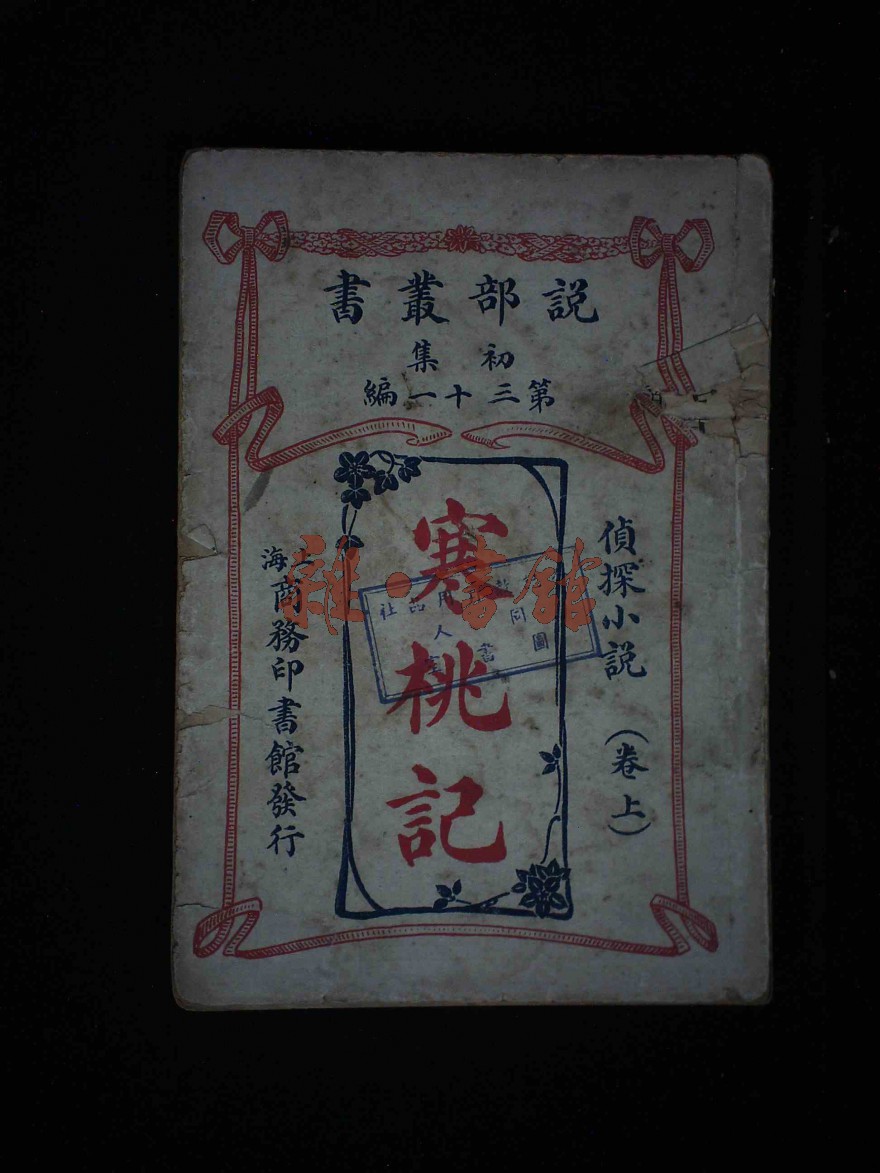 説部叢書
初集
第三十一編
偵探小説（卷上）
寒桃記
上海商務印書館發行
雜·書館